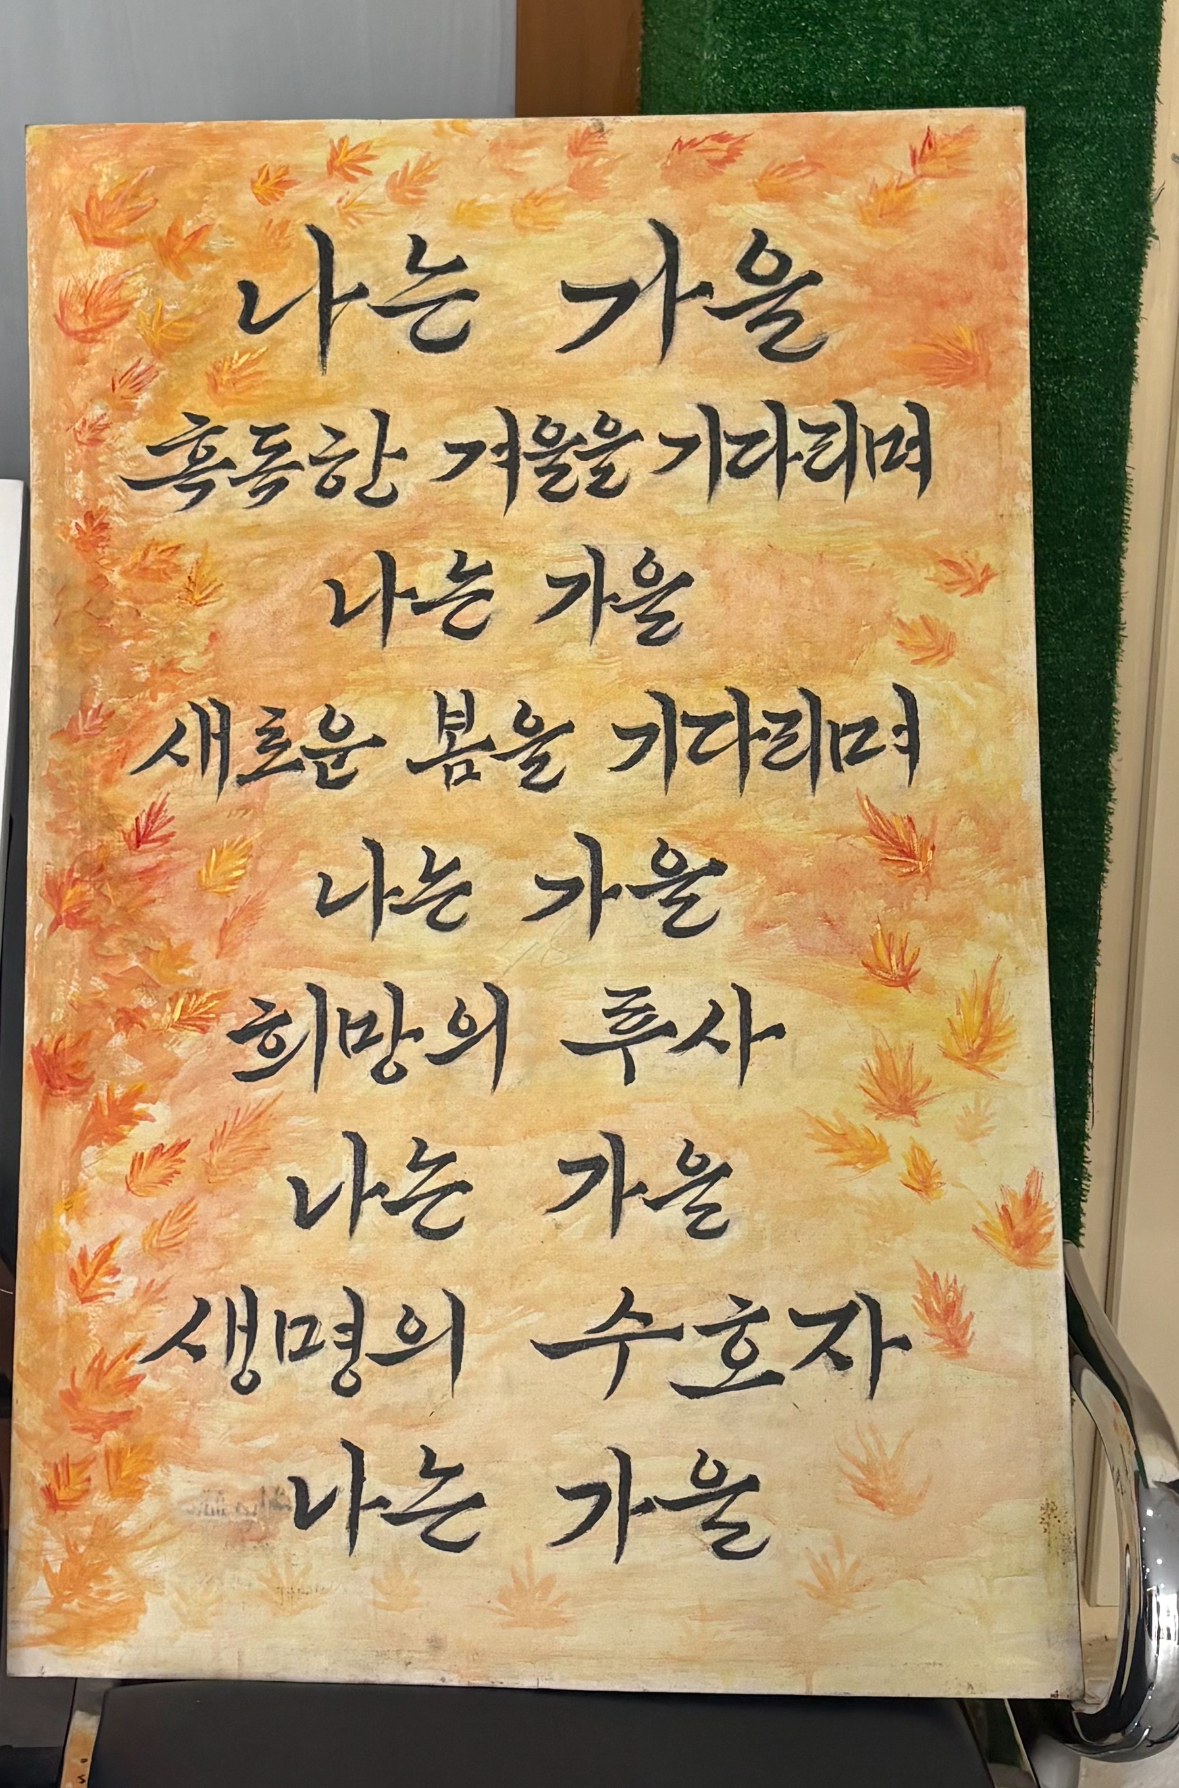 나는 가을
혹독한 겨울을 기다리며
나는 가을
새로운 봄을 기다리며
나는 가을
희망의 투사
나는 가을
생명의 수호자
나는 가을